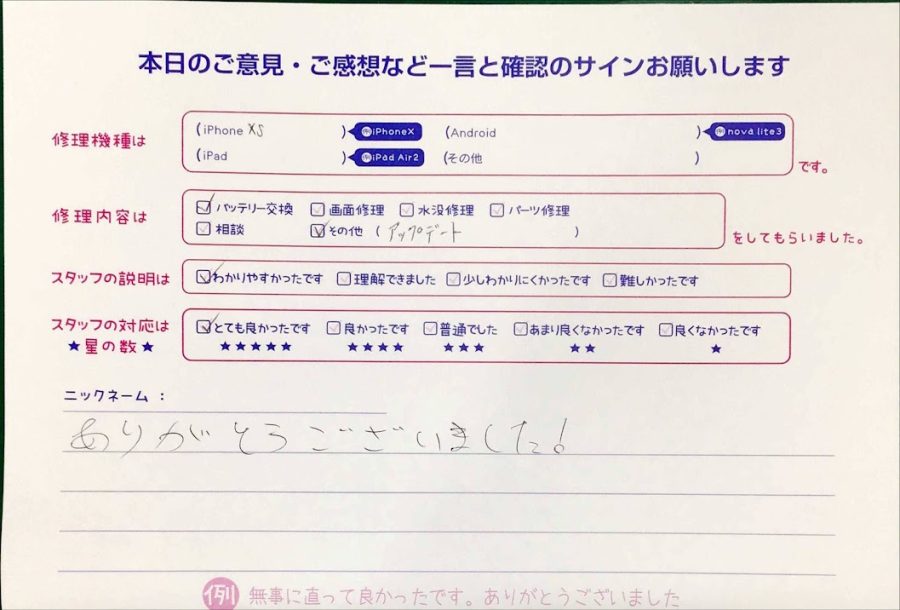 本日のご意見・ご感想など一言と確認のサインお願いします
修理機種は
(iPhone XS ) 例 iPhoneX (Android ) 例 nova lite3
(iPad ) 例 iPad Air2 (その他 )
です。
修理内容は
バッテリー交換 画面修理 水没修理 パーツ修理
相談 その他 ( アップデート )
をしてもらいました。
スタッフの説明は
わかりやすかったです 理解できました 少しわかりにくかったです 難しかったです
スタッフの対応は
★星の数★
とても良かったです 良かったです 普通でした あまり良くなかったです 良くなかったです
★★★★★ ★★★★ ★★★ ★★ ★
ニックネーム :
ありがとうございました!
例 無事に直って良かったです。ありがとうございました